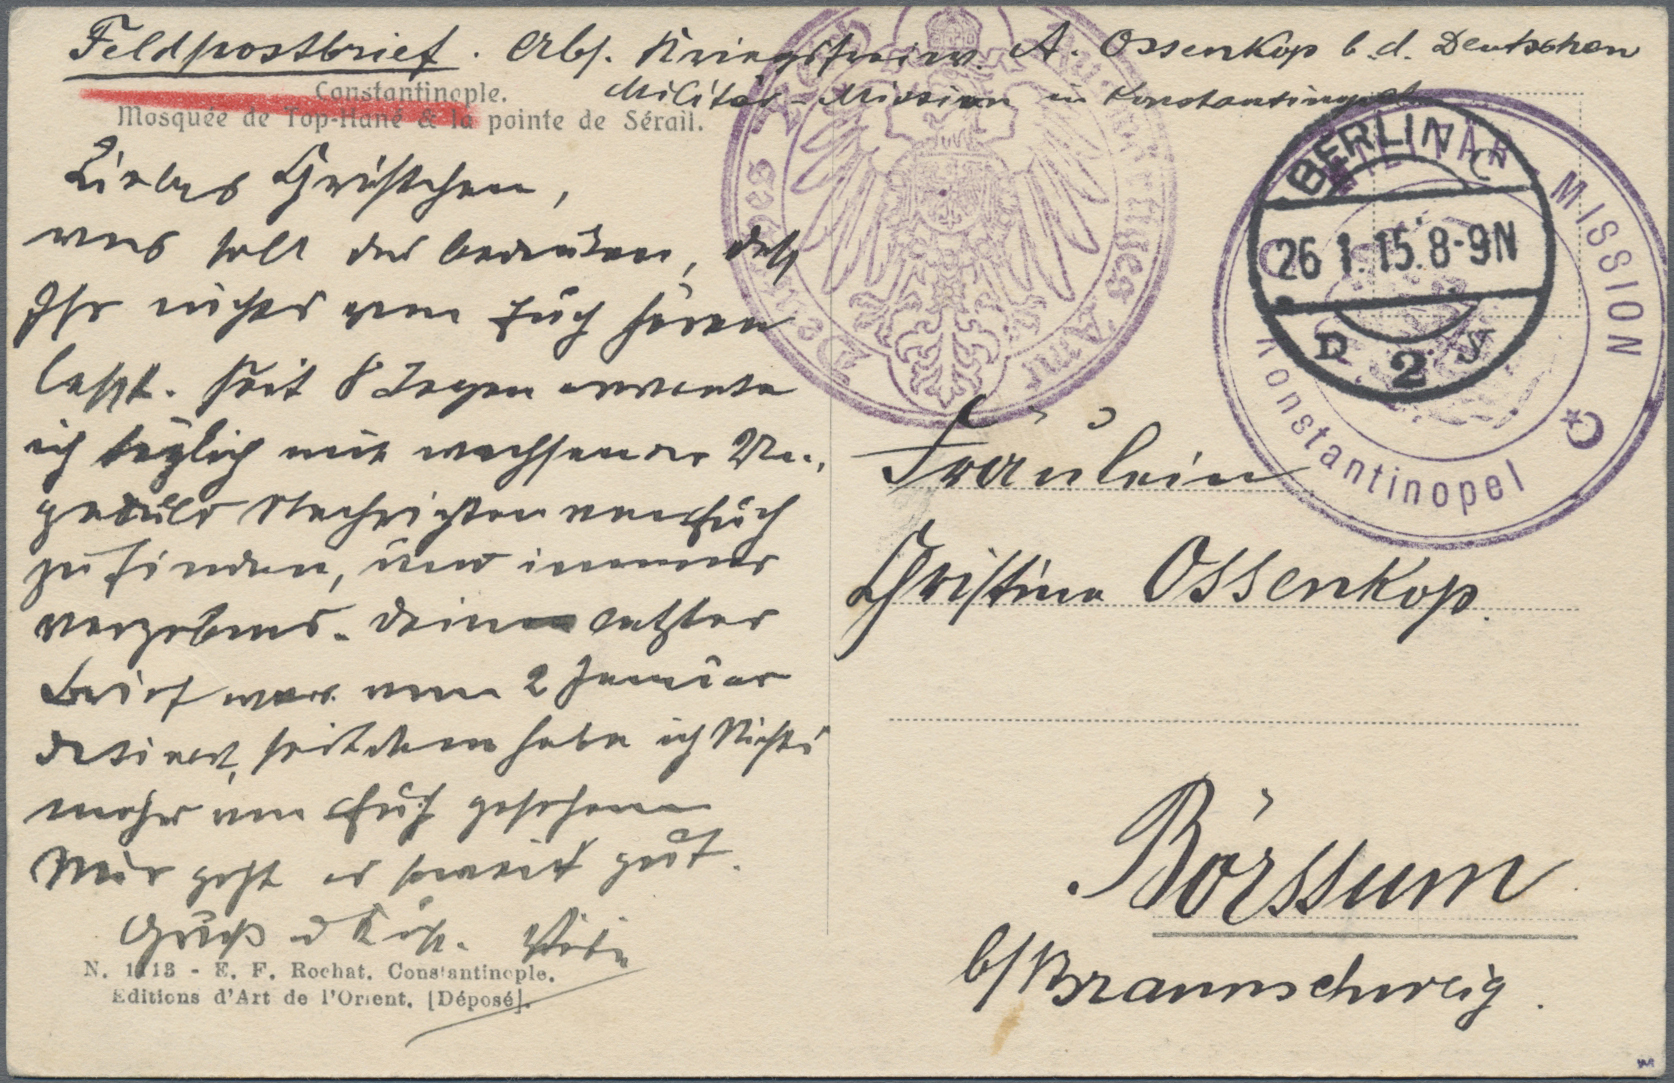 Feldpostbrief. Abs. Kriegsfreiw. A. Ossenkop b. d. Deutschen
Militär-Mission in Konstantinopel
Constantinople.
Mosquée de Top-Hané & la pointe de Sérail.
Liebes Christchen,
was soll das bedeuten, daß
Ihr nichts von Euch hören
laßt. Seit 8 Tagen erwarte
ich täglich mit wachsender Un-
geduld Nachrichten von Euch
zu finden, und immer
vergebens. Dein letzter
Brief war vom 2 Januar
datiert, seitdem habe ich Nichts
mehr von Euch gesehen
Mir geht es soweit gut.
Gruß u Kuß.
N. 1113 - E. F. Rochat. Constantinople.
Editions d'Art de l'Orient. [Déposé].
Deutsches Reich Auswärtiges Amt
MILITÄR MISSION
Konstantinopel
BERLIN C
26 1. 15. 8-9N
2
Fräulein
Christine Ossenkop.
Börssum
b/Braunschweig.